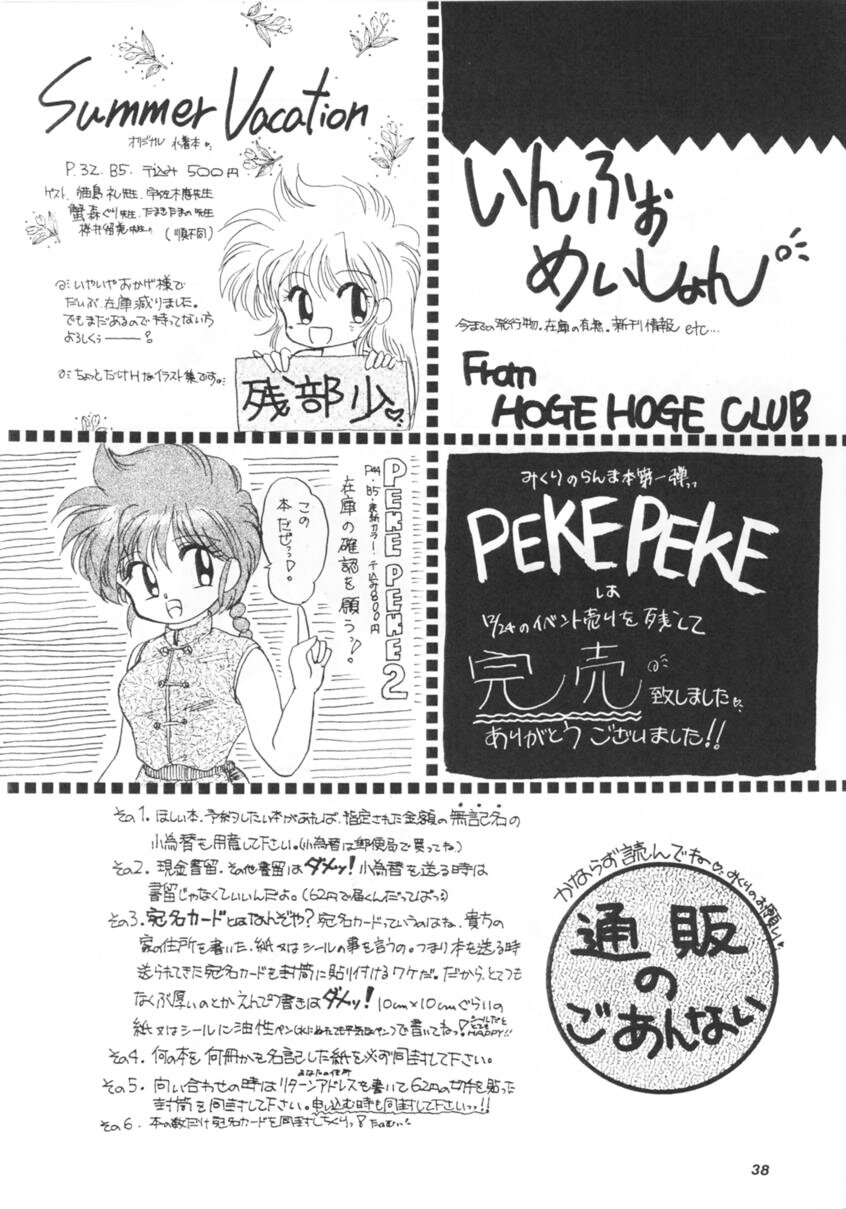 Summer Vacation
オリジナル 水着本
P.32. B5. 〒込み 500円
ゲスト、猫島礼先生、宇佐木
蟹森ぐり先生、たまきたまの先生
桜井留美先生。(順不同)
いやいやおかげ様で
だいぶ、在庫減りました。
でもまだあるので持ってない方
よろしくぅ――!
ちょっとだけHなイラスト集です。
残部少♡
いんふぉ
めいしょん
今までの発行物、在庫の有無、新刊情報 etc…
From
HOGE HOGE CLUB
PEKE PEKE 2
P44・B5・表紙カラー・〒込み800円
在庫の確認を願うっ!。
この
本だぜっっ!。
みくりのらんま本第一弾っっ
PEKE PEKE
は
12/24のイベント売りを残して
完売
致しました
ありがとう ございました!!
その1. ほしい本、予約したい本があれば、指定された金額の無記名の
小為替を用意して下さい。(小為替は郵便局で買ってね。)
その2. 現金書留、その他書留はダメッ! 小為替を送る時は
書留じゃなくていいんだよ。(62円で届くんだってばっ!)
その3. 宛名カードとはなんぞや? 宛名カードっていうのはね、貴方の
家の住所を書いた、紙又はシールの事を言うの。つまり本を送る時
送られてきた宛名カードを封筒に貼り付けるワケだ。だから、とてつも
なくぶ厚いのとかえんぴつ書きはダメッ! 10cm×10cmぐらいの
紙又はシールに油性ペン(水にぬれても平気なペン)で書いてねっ! シールだと とても HAPPY!!
その4. 何の本を何冊かを名記した紙を必ず同封して下さい。
あなたの住所
その5. 問い合わせの時はリターンアドレスを書いて62円の切手を貼った
封筒を同封して下さい。申し込む時も同封して下さいっっ!!
その6. 本の数だけ宛名カードを同封しちくりっ! たのむい!
かならず読んでね♡ みくりのお願い
通販
の
ごあんない
38